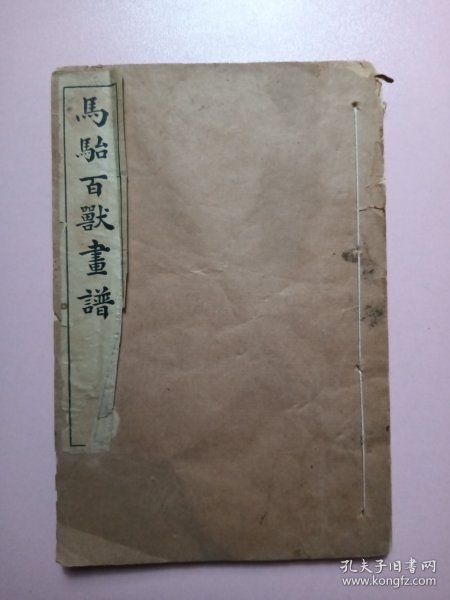 馬駘百獸畫譜
孔夫子旧书网
www.kongfz.com